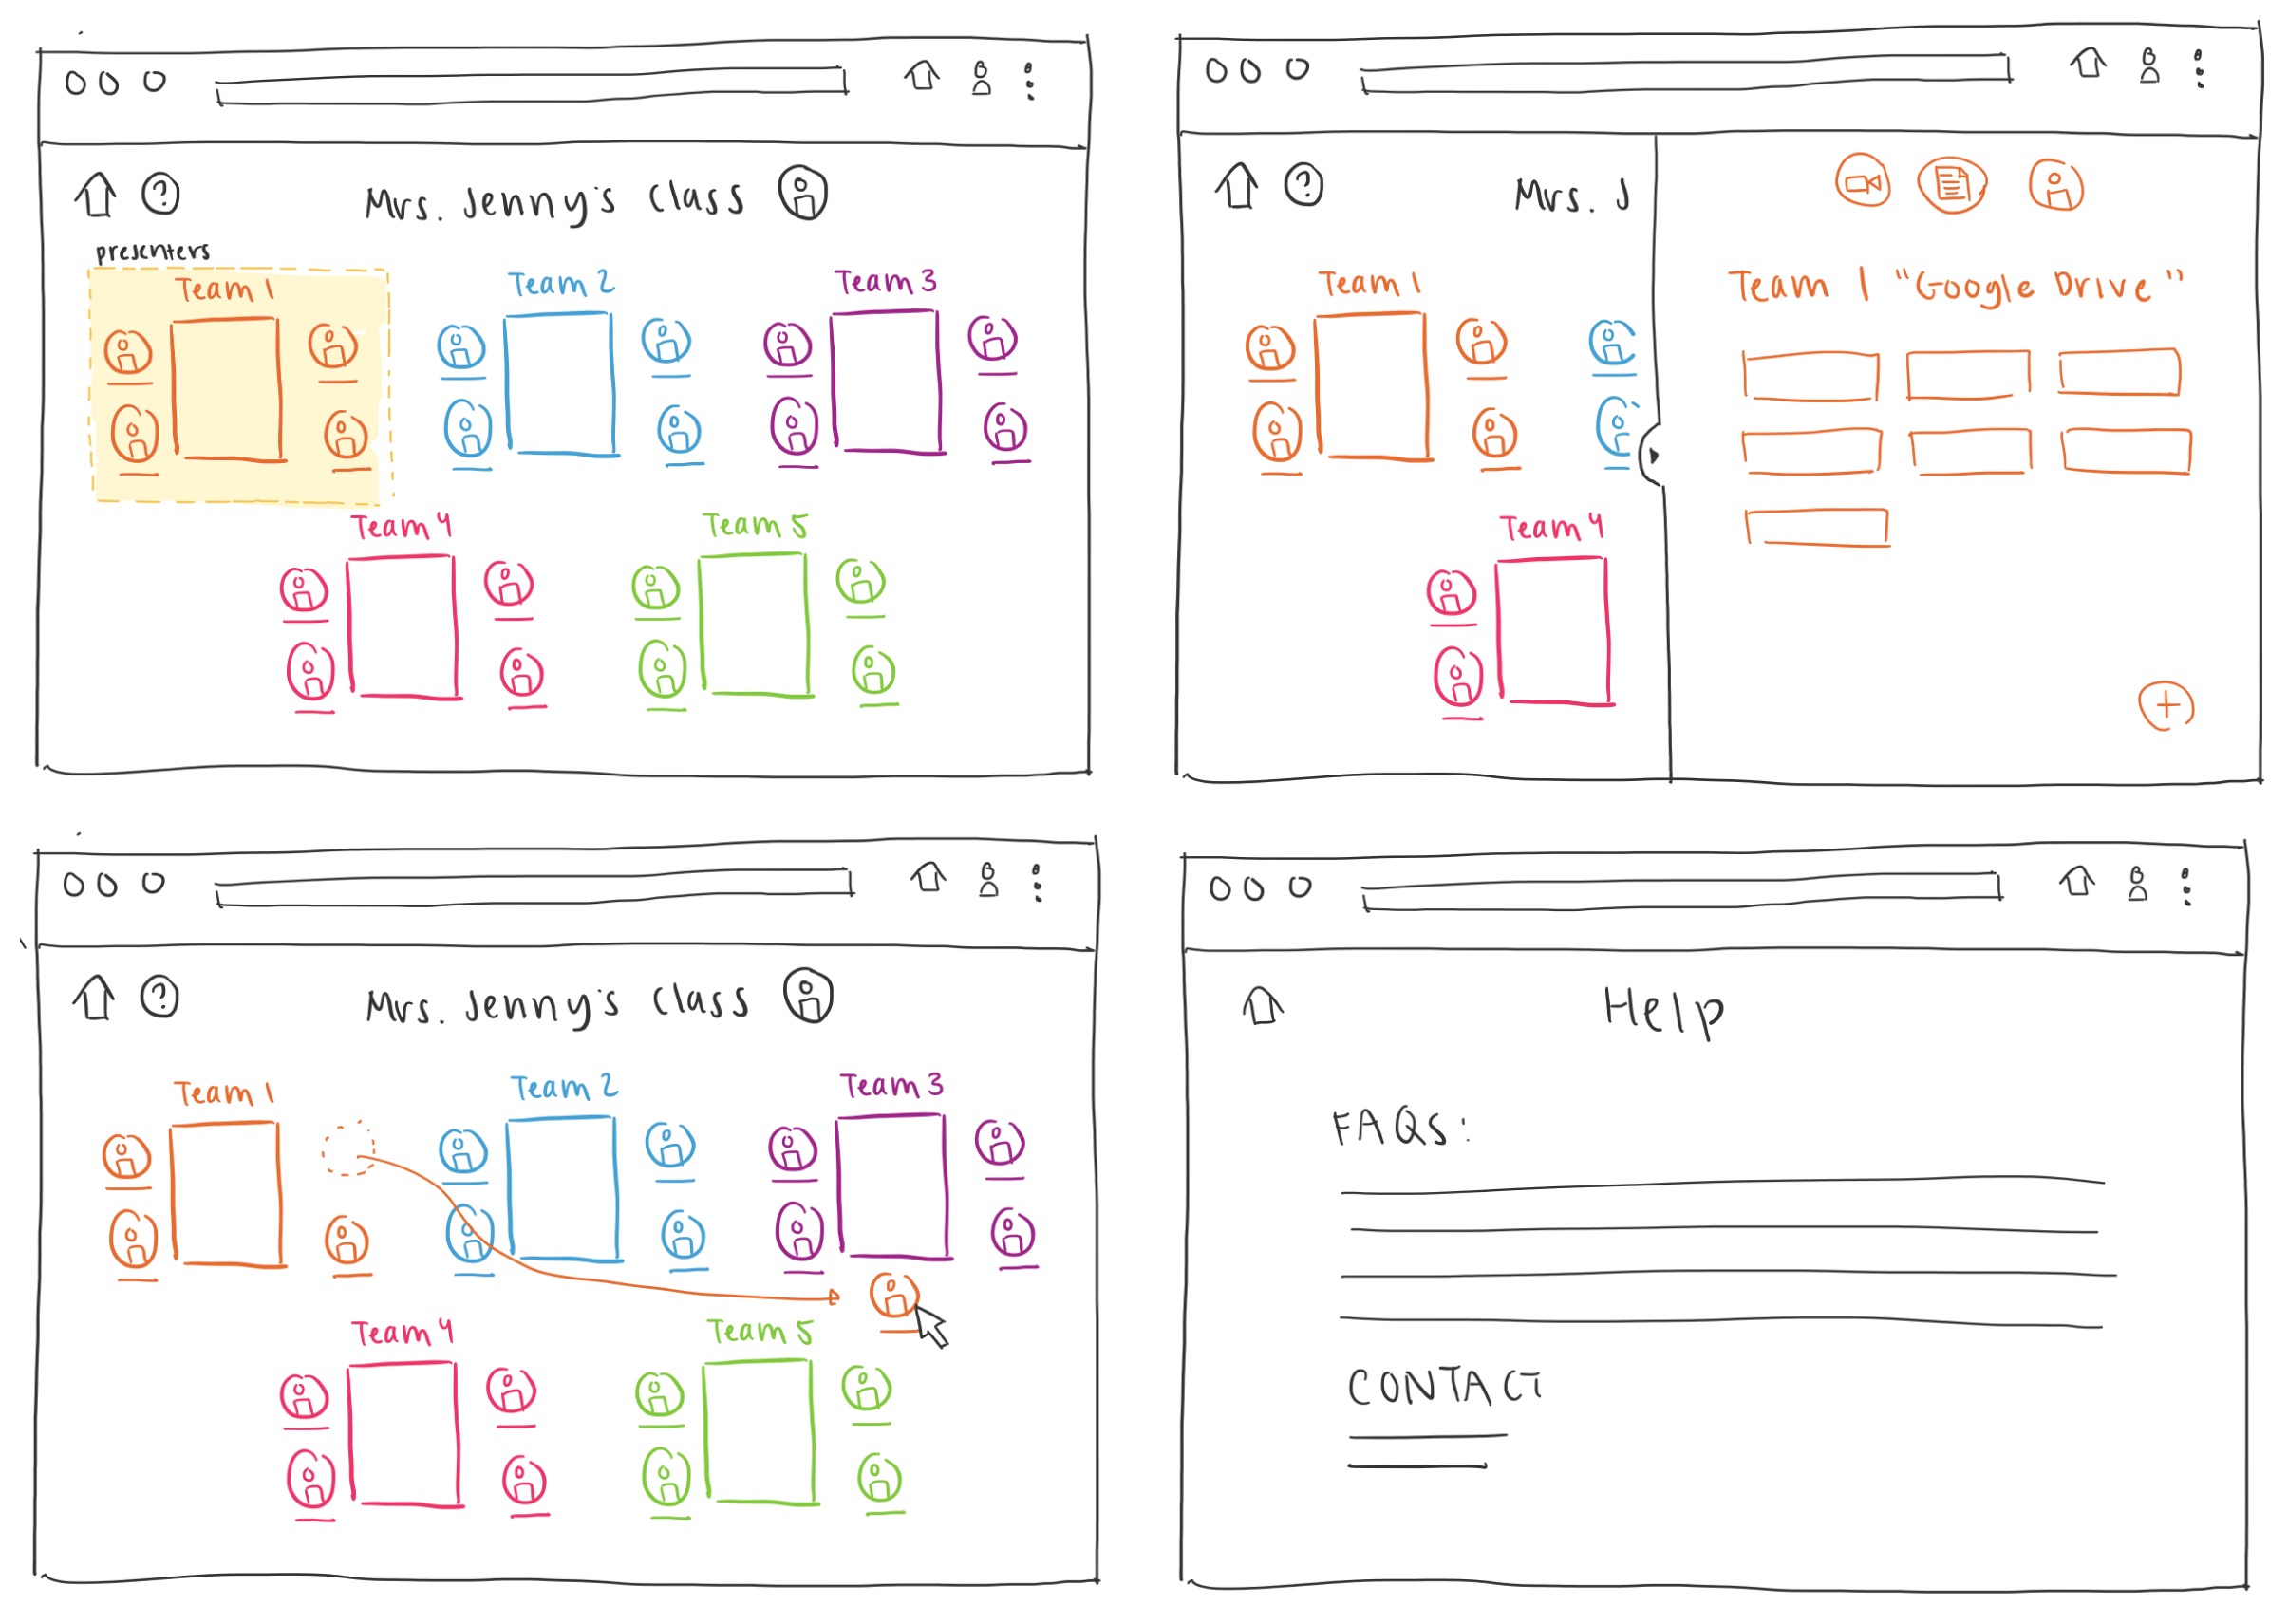 Mrs. Jenny's Class
presenters
Team 1
Team 2
Team 3
Team 4
Team 5
Mrs. J
Team 1
Team 4
Team 1 "Google Drive"
Mrs. Jenny's Class
Team 1
Team 2
Team 3
Team 4
Team 5
Help
FAQs:
CONTACT